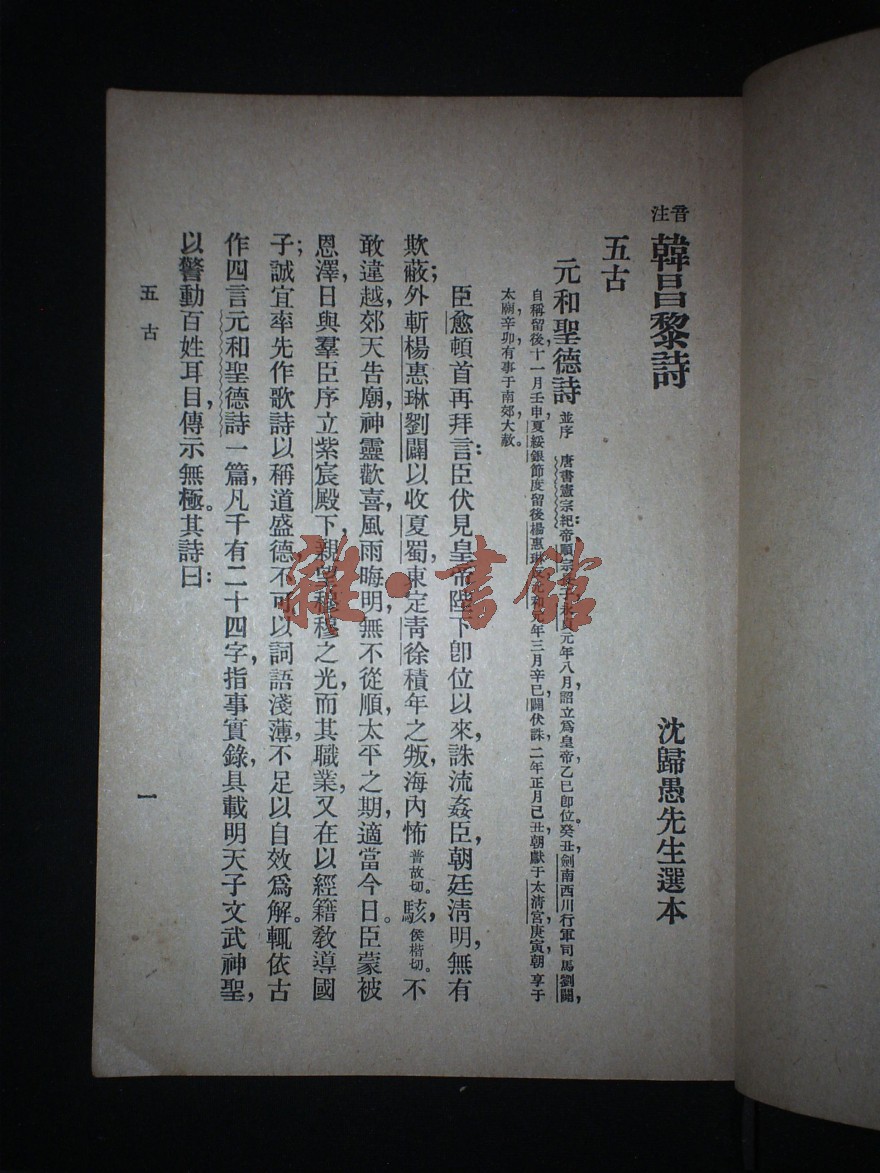 音注韓昌黎詩 沈歸愚先生選本
五古
元和聖德詩 並序 唐書憲宗紀：帝順宗長子永貞元年八月詔立爲皇帝，乙巳卽位。癸丑，劍南西川行軍司馬劉闢，
自稱留後，十一月壬申，夏綏銀節度留後楊惠琳反，元和元年三月辛巳，闢伏誅，二年正月己丑，朝獻于太淸宮，庚寅，朝享于
太廟，辛卯，有事于南郊，大赦。
臣愈頓首再拜言：臣伏見皇帝陛下卽位以來，誅流姦臣，朝廷淸明，無有
欺蔽；外斬楊惠琳劉闢以收夏蜀，東定靑徐積年之叛，海內怖普故切。駭，侯楷切。不
敢違越，郊天告廟，神靈歡喜，風雨晦明，無不從順，太平之期，適當今日。臣蒙被
恩澤，日與羣臣序立紫宸殿下，親望穆穆之光，而其職業，又在以經籍敎導國
子；誠宜率先作歌詩以稱道盛德，不可以詞語淺薄，不足以自效爲解。輒依古
作四言元和聖德詩一篇，凡千有二十四字，指事實錄，具載明天子文武神聖，
以警動百姓耳目，傳示無極。其詩曰：
五古 一
雜·書館